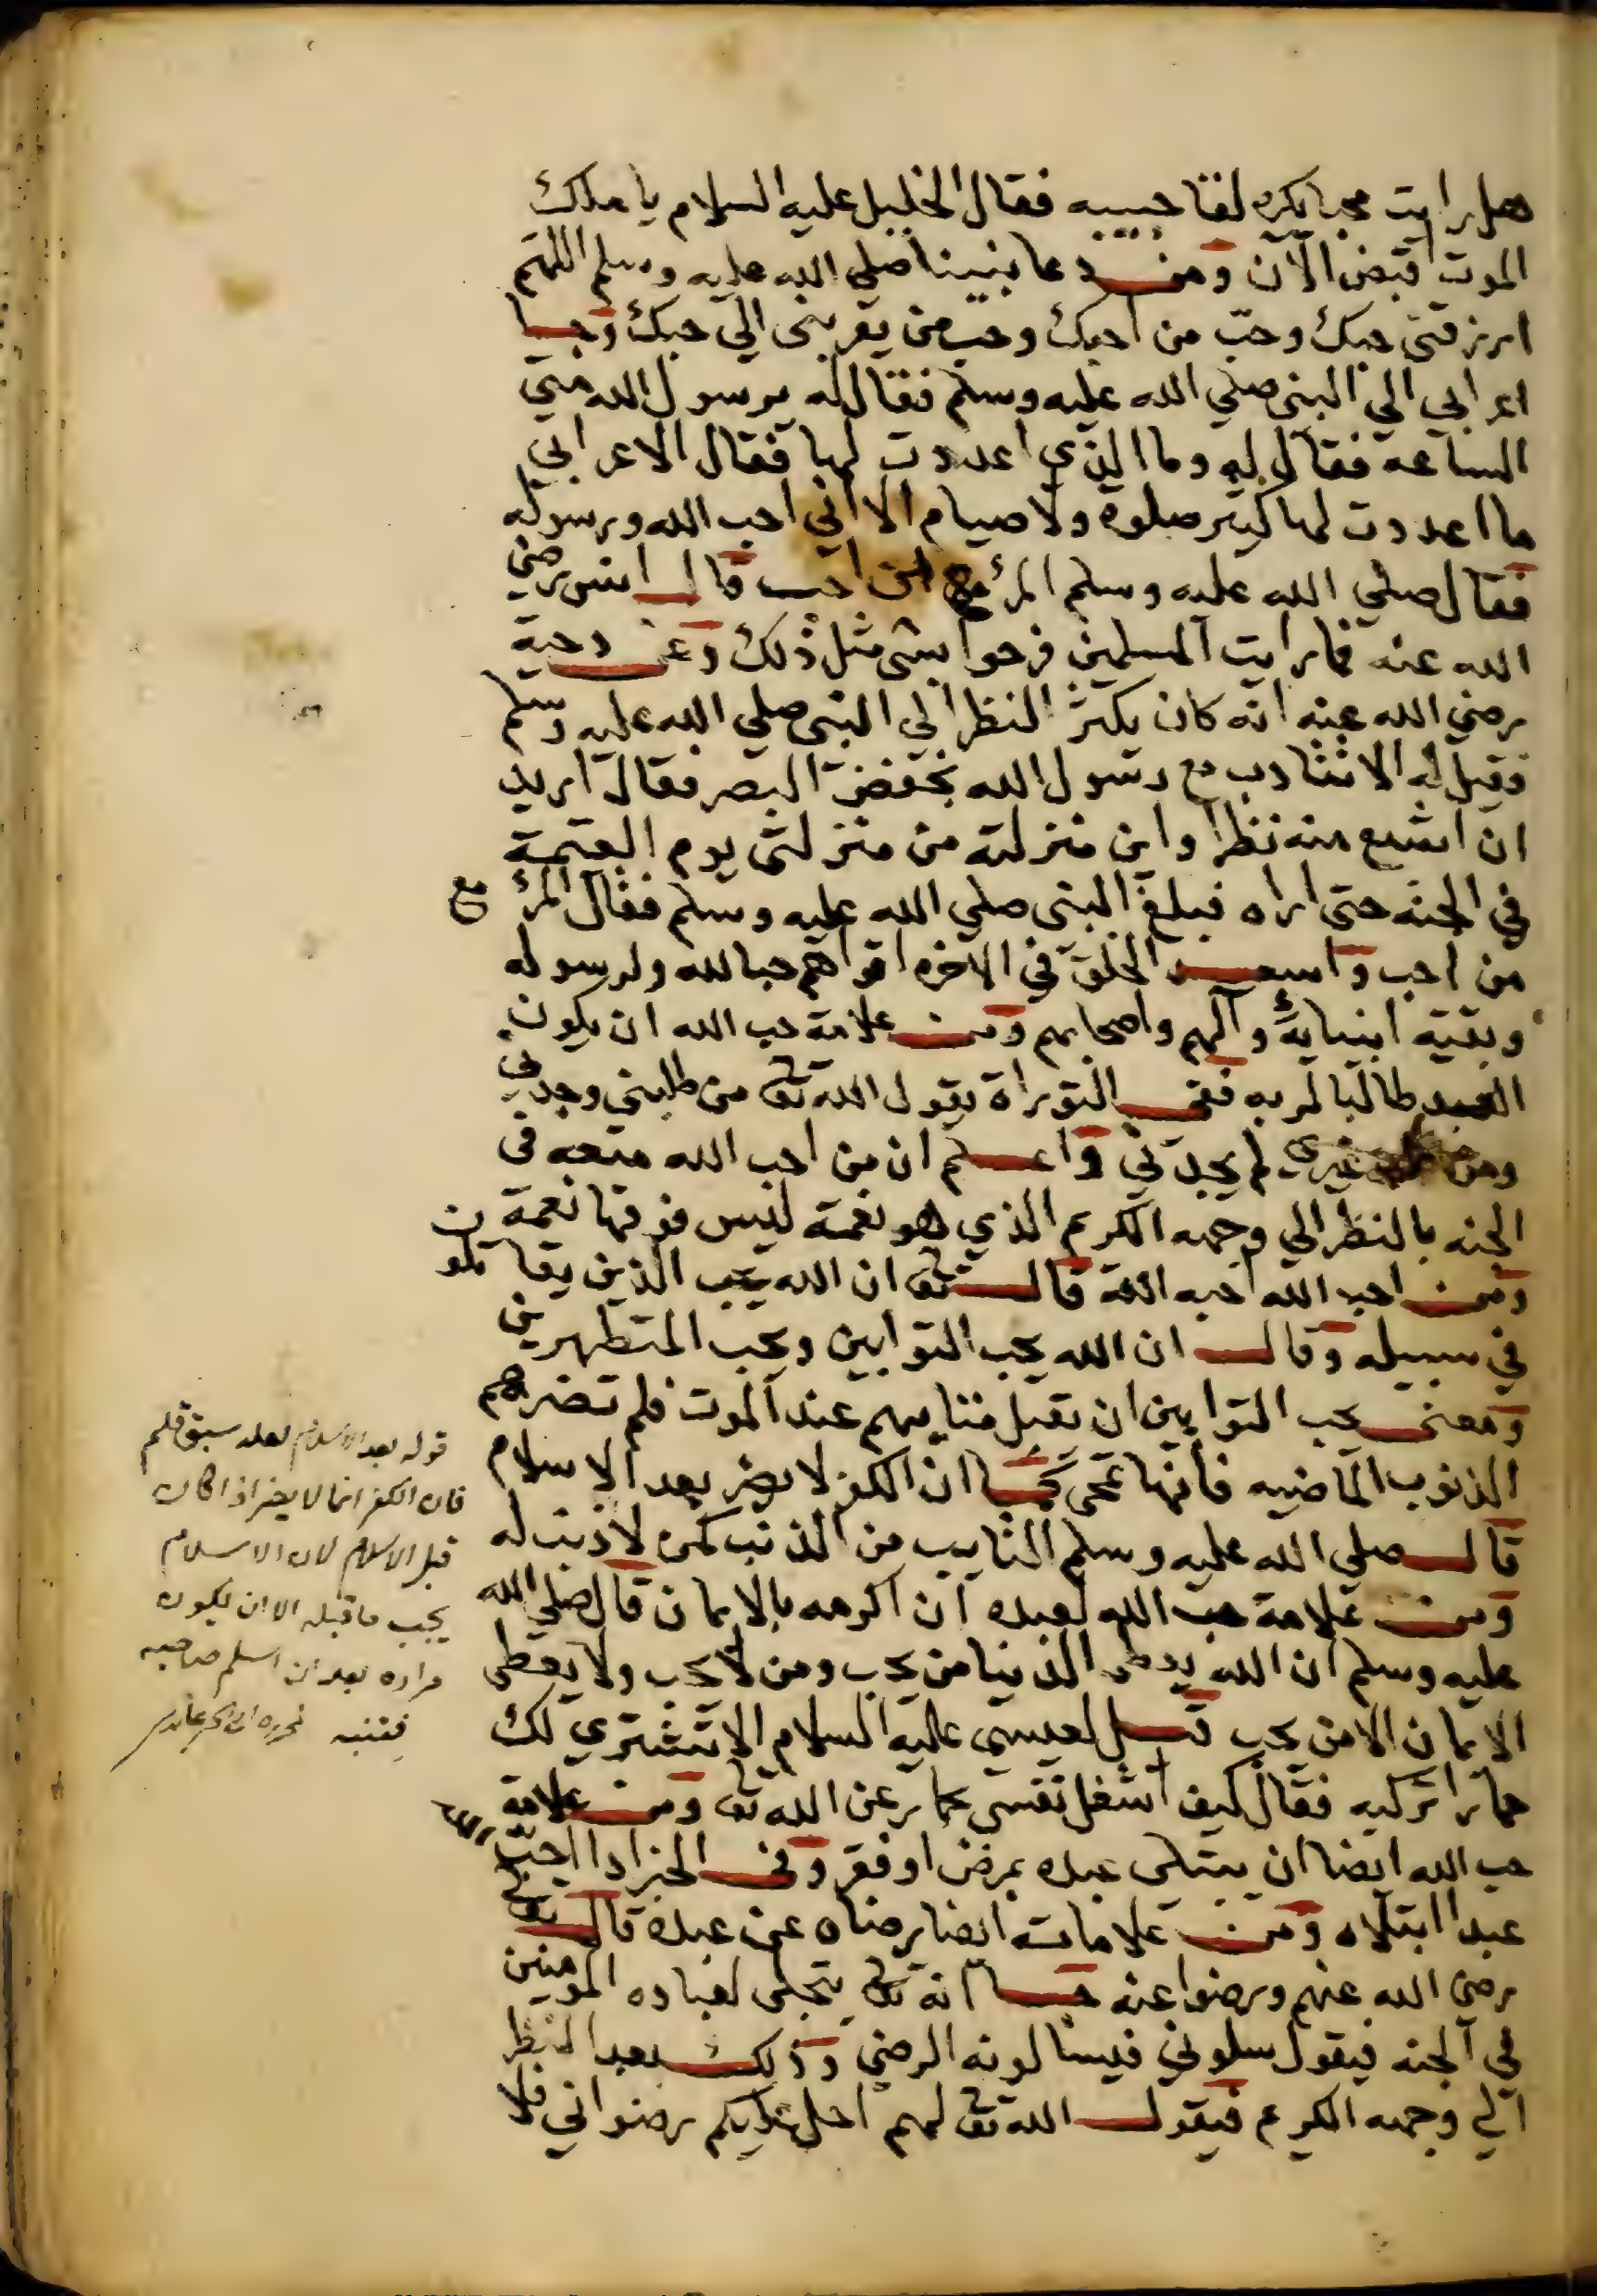 هل رايت محبا يكره لقا حبيبه فقال الخليل عليه السلام يا ملك
الموت اقبض الآن ومن دعا نبينا صلي الله عليه وسلم اللهم
ارزقني حبك وحبّ من احبك وحب من يقربني الي حبك وجا
اعرابي الي النبي صلي الله عليه وسلم فقال له يرسول الله متي
الساعه فقال له وما الذي اعددت لها فقال الاعرابي
ما اعددت لها كثير صلوة ولا صيام الا اني احب الله ورسوله
فقال صلي الله عليه وسلم المرئ مع من احب قال انس رضي
الله عنه فما رايت المسلمين فرحوا بشي مثل ذلك وعن دحية
رضي الله عنه انه كان يكثر النظر الي النبي صلي الله عليه وسلم
فقيل له الا تتادب مع رسول الله بخفض البصر فقال اريد
ان اشبع منه نظرا واين منزلته من منزلتي يوم القيمة
في الجنه حتي اراه فبلغ النبي صلي الله عليه وسلم فقال المرئ مع
من احب واسعد الخلق في الاخره اقواهم حبا لله ولرسوله
وبقية انبيايه وآلهم واصحابهم ومن علامة حب الله ان يكون
العبد طالبا لربه ففي التوراة يقول الله تعا من طلبني وجدني
ومن غيري لم يجدني واعلم ان من احب الله متعه في
الجنه بالنظر الي وجهه الكريم الذي هو نعمة ليس فوقها نعمة
ومن احب الله احبه الله قال تعا ان الله يحب الذين يقاتلون
في سبيله وقال ان الله يحب التوابين ويحب المتطهرين
ومعني يحب التوابين ان تقبل متابهم عند الموت فلم تضرهم
الذنوب الماضيه فانها تمحي كما ان الكفر لا يضر بعد الاسلام
قال صلي الله عليه وسلم التايب من الذنب كمن لا ذنب له
ومن علامة حب الله لعبده ان اكرمه بالايمان قال صلي الله
عليه وسلم ان الله يعطي الدنيا من يحب ومن لا يحب ولا يعطي
الايمان الا من يحب قيل لعيسي عليه السلام الا تشتري لك
حمارا تركبه فقال كيف اشغل نفسي بحمار عن الله تعا ومن علامة
حب الله ايضا ان يبتلي عبده بمرض او فقر وفي الخبر اذا احب الله
عبدا ابتلاه ومن علامات ايضا رضاه عن عبده قال تعا
رضي الله عنهم ورضوا عنه جا انه تعا يتجلي لعباده المومنين
في الجنه فيقول سلوني فيسالونه الرضي وذلك بعد النظر
الي وجهه الكريم فيقول الله تعا لهم احل عليكم رضواني فلا
قوله بعد الاسلام لعله سبق قلم
فان الكفر انما لا يضر اذا كان
قبل الاسلام لان الاسلام
يجب ما قبله الا ان يكون
مراده بعد ان اسلم صاحبه
فتنبه